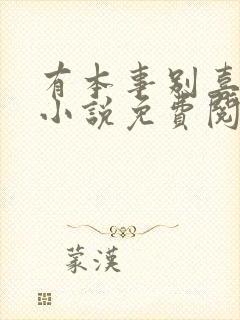 有本事别喜
小說免費閱
蒙漢